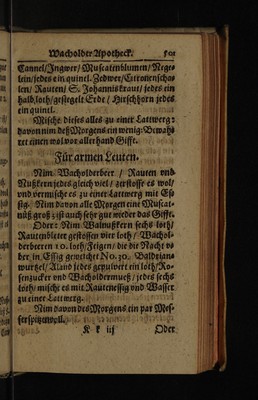 Wacholder-Apotheck. 501
Cannel/Ingwer/Muscatenblumen/Nege-
lein/jedes ein quintl. Zedwer/Citronenscha-
len/Rauten/S. Johanniskraut/jedes ein
halb loth/gesiegelt Erde/Hirschhorn jedes
ein quintl.
Mische dieses alles zu einer Latwerg:
davon nim deß Morgens ein wenig: Bewah-
ret einen wol vor allerhand Giffte.
Für armen Leuten.
Nim Wacholderbeer/Rauten und
Nußkern jedes gleich viel/zerstosse es wol/
und vermische es zu einer Latwerg mit Es-
sig. Nim davon alle Morgen eine Muscat-
nüß groß: ist auch sehr gut wieder das Gifft.
Oder: Nim Walnußkern sechs loth/
Rautenbletter gestossen vier loth/Wachol-
derbeeren 10. loth/Feigen/die die Nacht ü-
ber in Essig geweichet No. 30. Baldrian-
wurtzel/Aland jedes gepulvert ein loth/Ro-
senzucker und Wacholdermuß/jedes sechs
loth/mischs es mit Rautenessig und Wasser
zu einer Latwerg.
Nim davon des Morgens ein par Mes-
serspitzen voll.
K k iij Oder